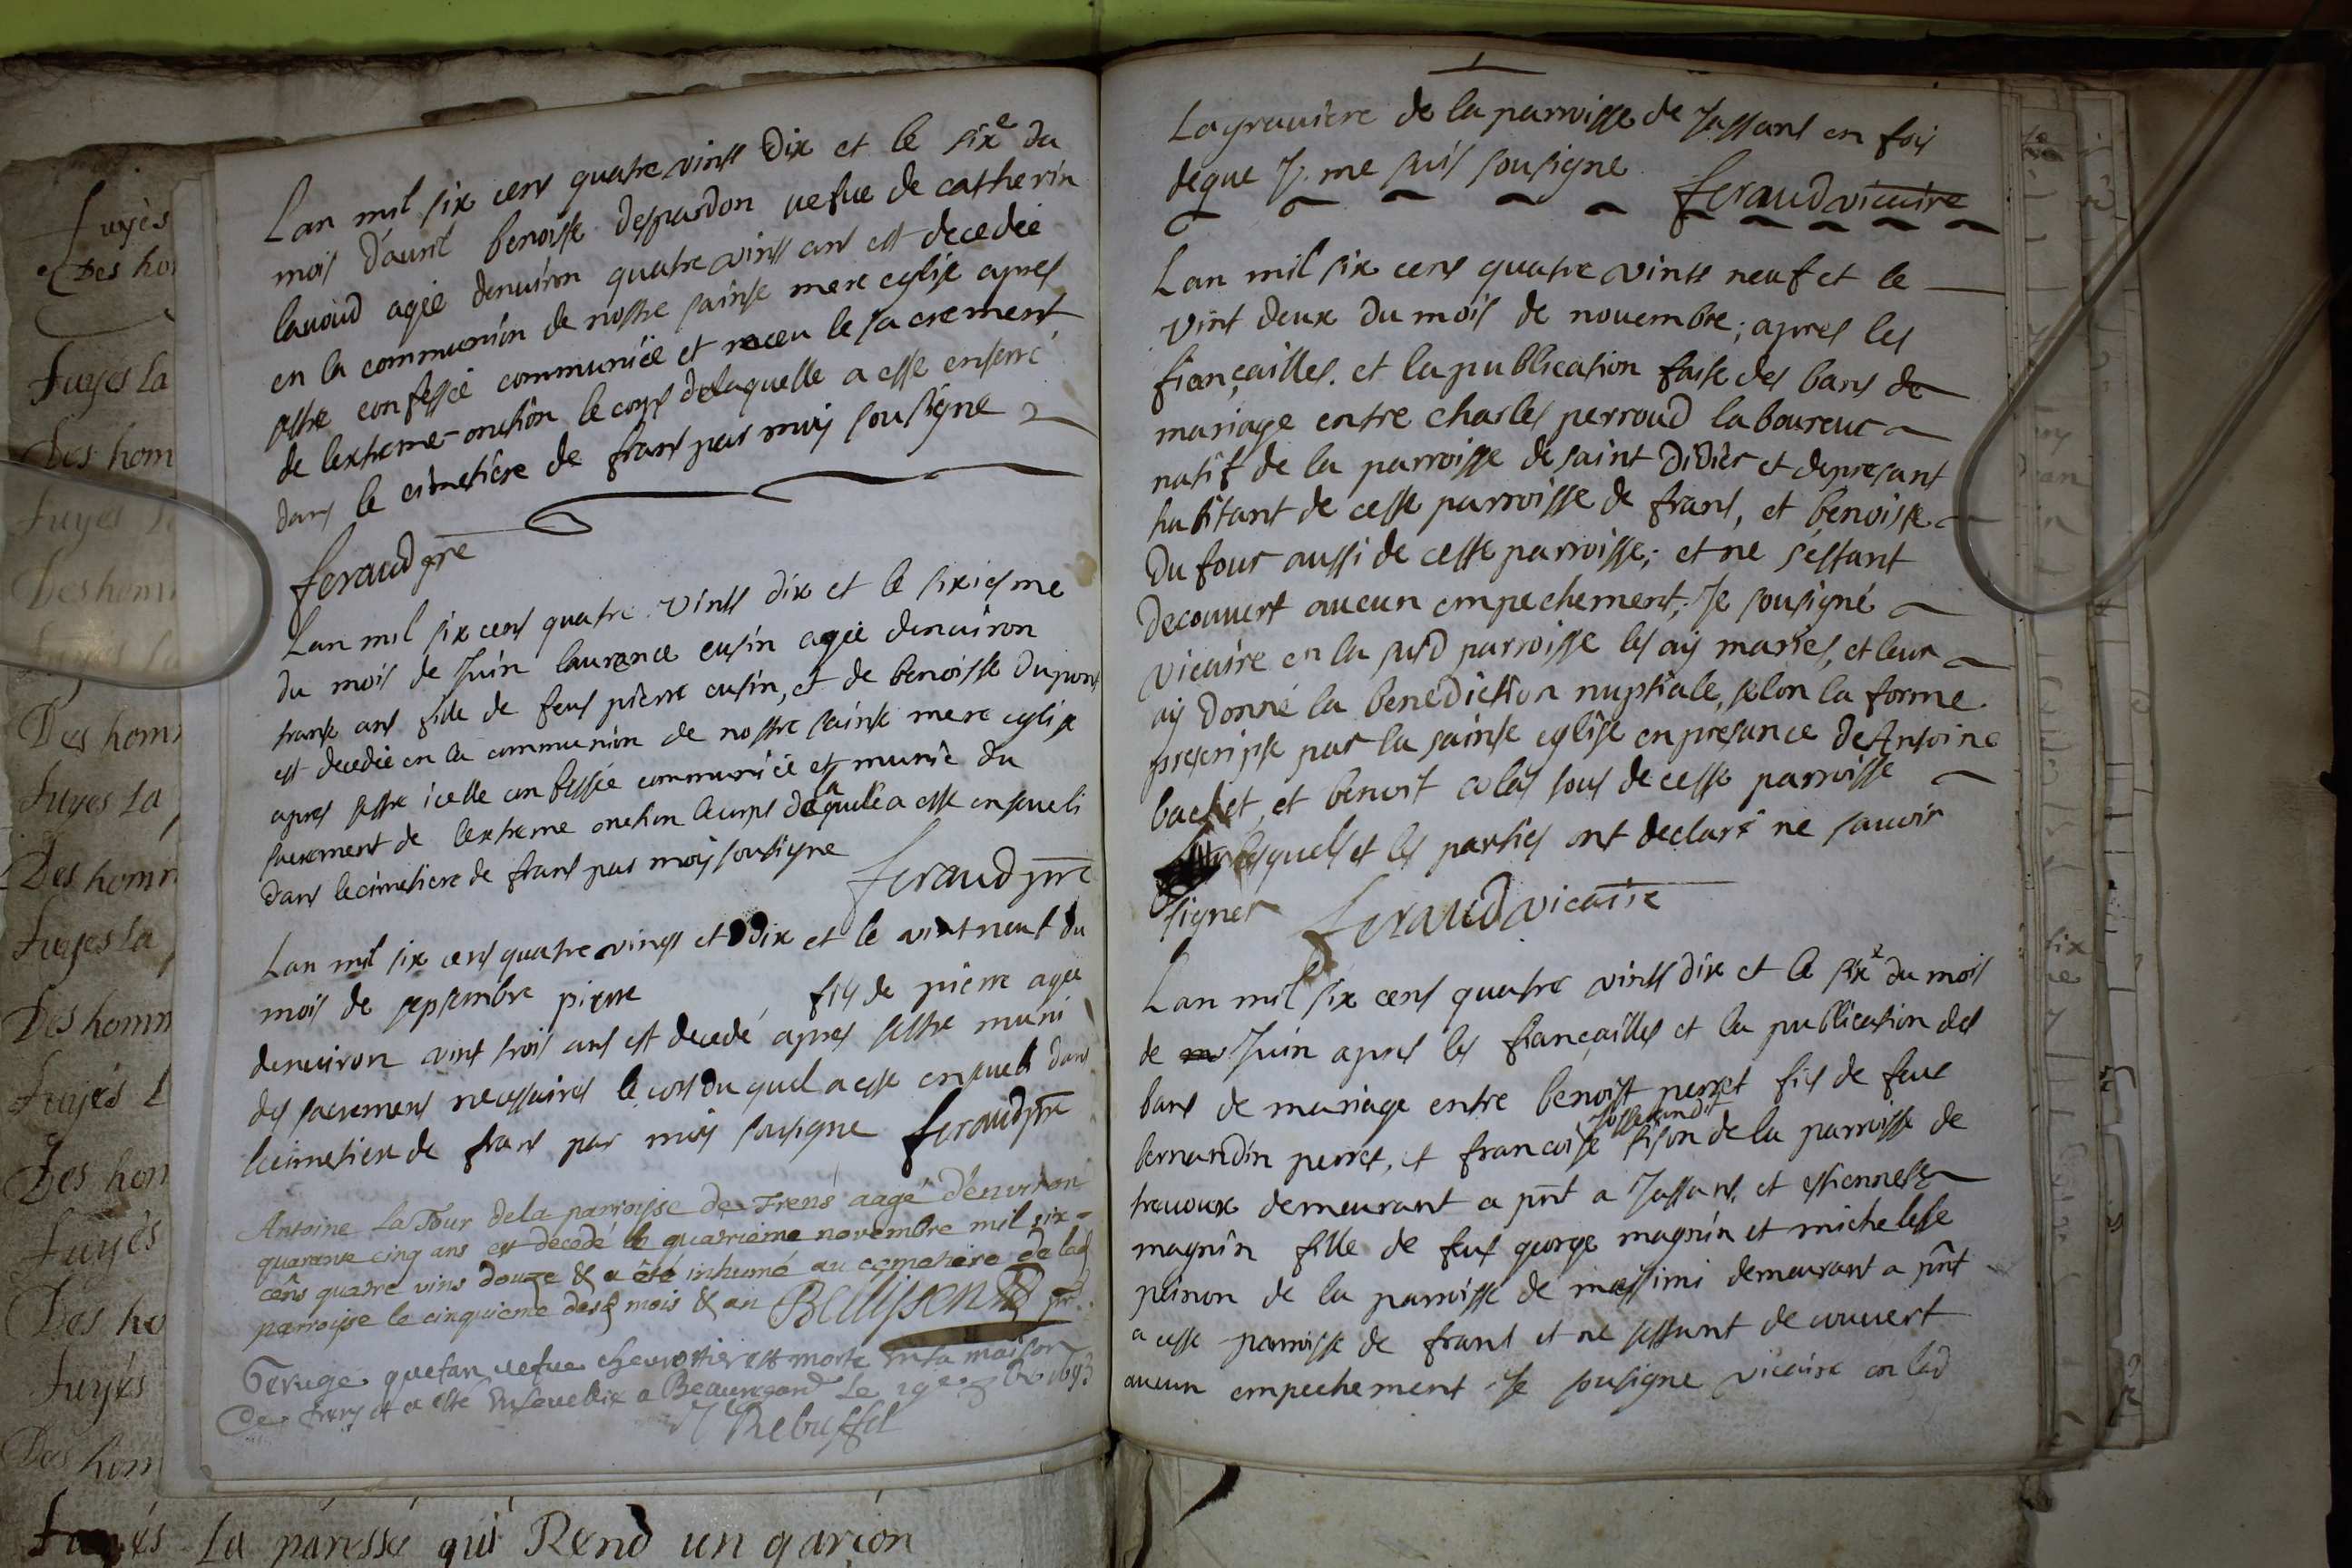 Lan mil six cens quatre vints dix et le sixe du
mois d'auril benoiste despardon vefue de catherin
lauoud agée denuiron quatre vints ans est decedée
en la communion de nostre sainte mere eglise apres
estre confessée communiée et receu le sacrement
de lextreme-onction le corps de laquelle a esté enterré
dans le cimetiere de frans par moy sousigne
feraud pre
Lan mil six cens quatre vints dix et le sixiesme
du mois de Juin laurence cusin agée denuiron
trante ans fille de feus pierre cusin, et de benoiste dupont
est decedée en la communion de nostre sainte mere eglise
apres estre icelle confessée communiée et munie du
sacrement de lextreme onction le corps de laquelle a esté enseueli
dans le cimetiere de frans par moy sousigne feraud pre
Lan mil six cens quatre vings et dix et le vint neuf du
mois de septembre pierre fils de pierre agée
denuiron vint trois ans est decedé apres sestre muni
des sacremens necessaires le cors du quel a esté enseueli dans
le cimetiere de frans par moy sousigne feraud pre
Antoine La Tour de la parroisse de Frens aagé d'enuiron
quarante cinq ans est décedé le quatrieme novembre mil six-
cens quatre vins douze & a été inhumé au cemetiere de lad
parroisse le cinquieme desd mois & an Bellissend pr.
quetan vefue cheurotier est morte en sa maison
de frens et a esté enseuelie a Beauregard Le 29e 8bre 1693
Rebuffel
Lagrauiere de la parroisse de Jassans en foy
deque Je me suis sousigne feraud vicaire
Lan mil six cens quatre vints neuf et le
vint deux du mois de nouembre; apres les
fiançailles. et la publication faite des bans de
mariage entre charles perroud laboureur
natif de la parroisse de saint Didier et depresant
habitant de cette parroisse de frans, et benoiste
Du four aussi de cette parroisse; et ne s'estant
decouvert aucun empechement, Je sousigné
vicaire en la susd parroisse les ay mariés, et leur
ay donné la benediction nuptiale, selon la forme
prescripte par la sainte eglise en presance de Antoine
bachet, et benoit colas tous de cette parroisse
lesquels et les parties ont declaré ne sauoir
signer feraud vicaire
Lan mil six cens quatre vints dix et le sixe du mois
de Juin apres les fiançailles et la publication des
bans de mariage entre benoist perret fils de feus
bernardin perret, et francoise tison de la parroisse de
treuoux demeurant a pnt a Jassans, et estiennette
magnin fille de feus george magnin et michelette
pinon de la parroisse de massimi demeurant a pnt
a cette parroisse de frans et ne sestant decouvert
aucun empechement Je sousigne vicaire en lad
Fuyés La paressé qui Rend un garçon